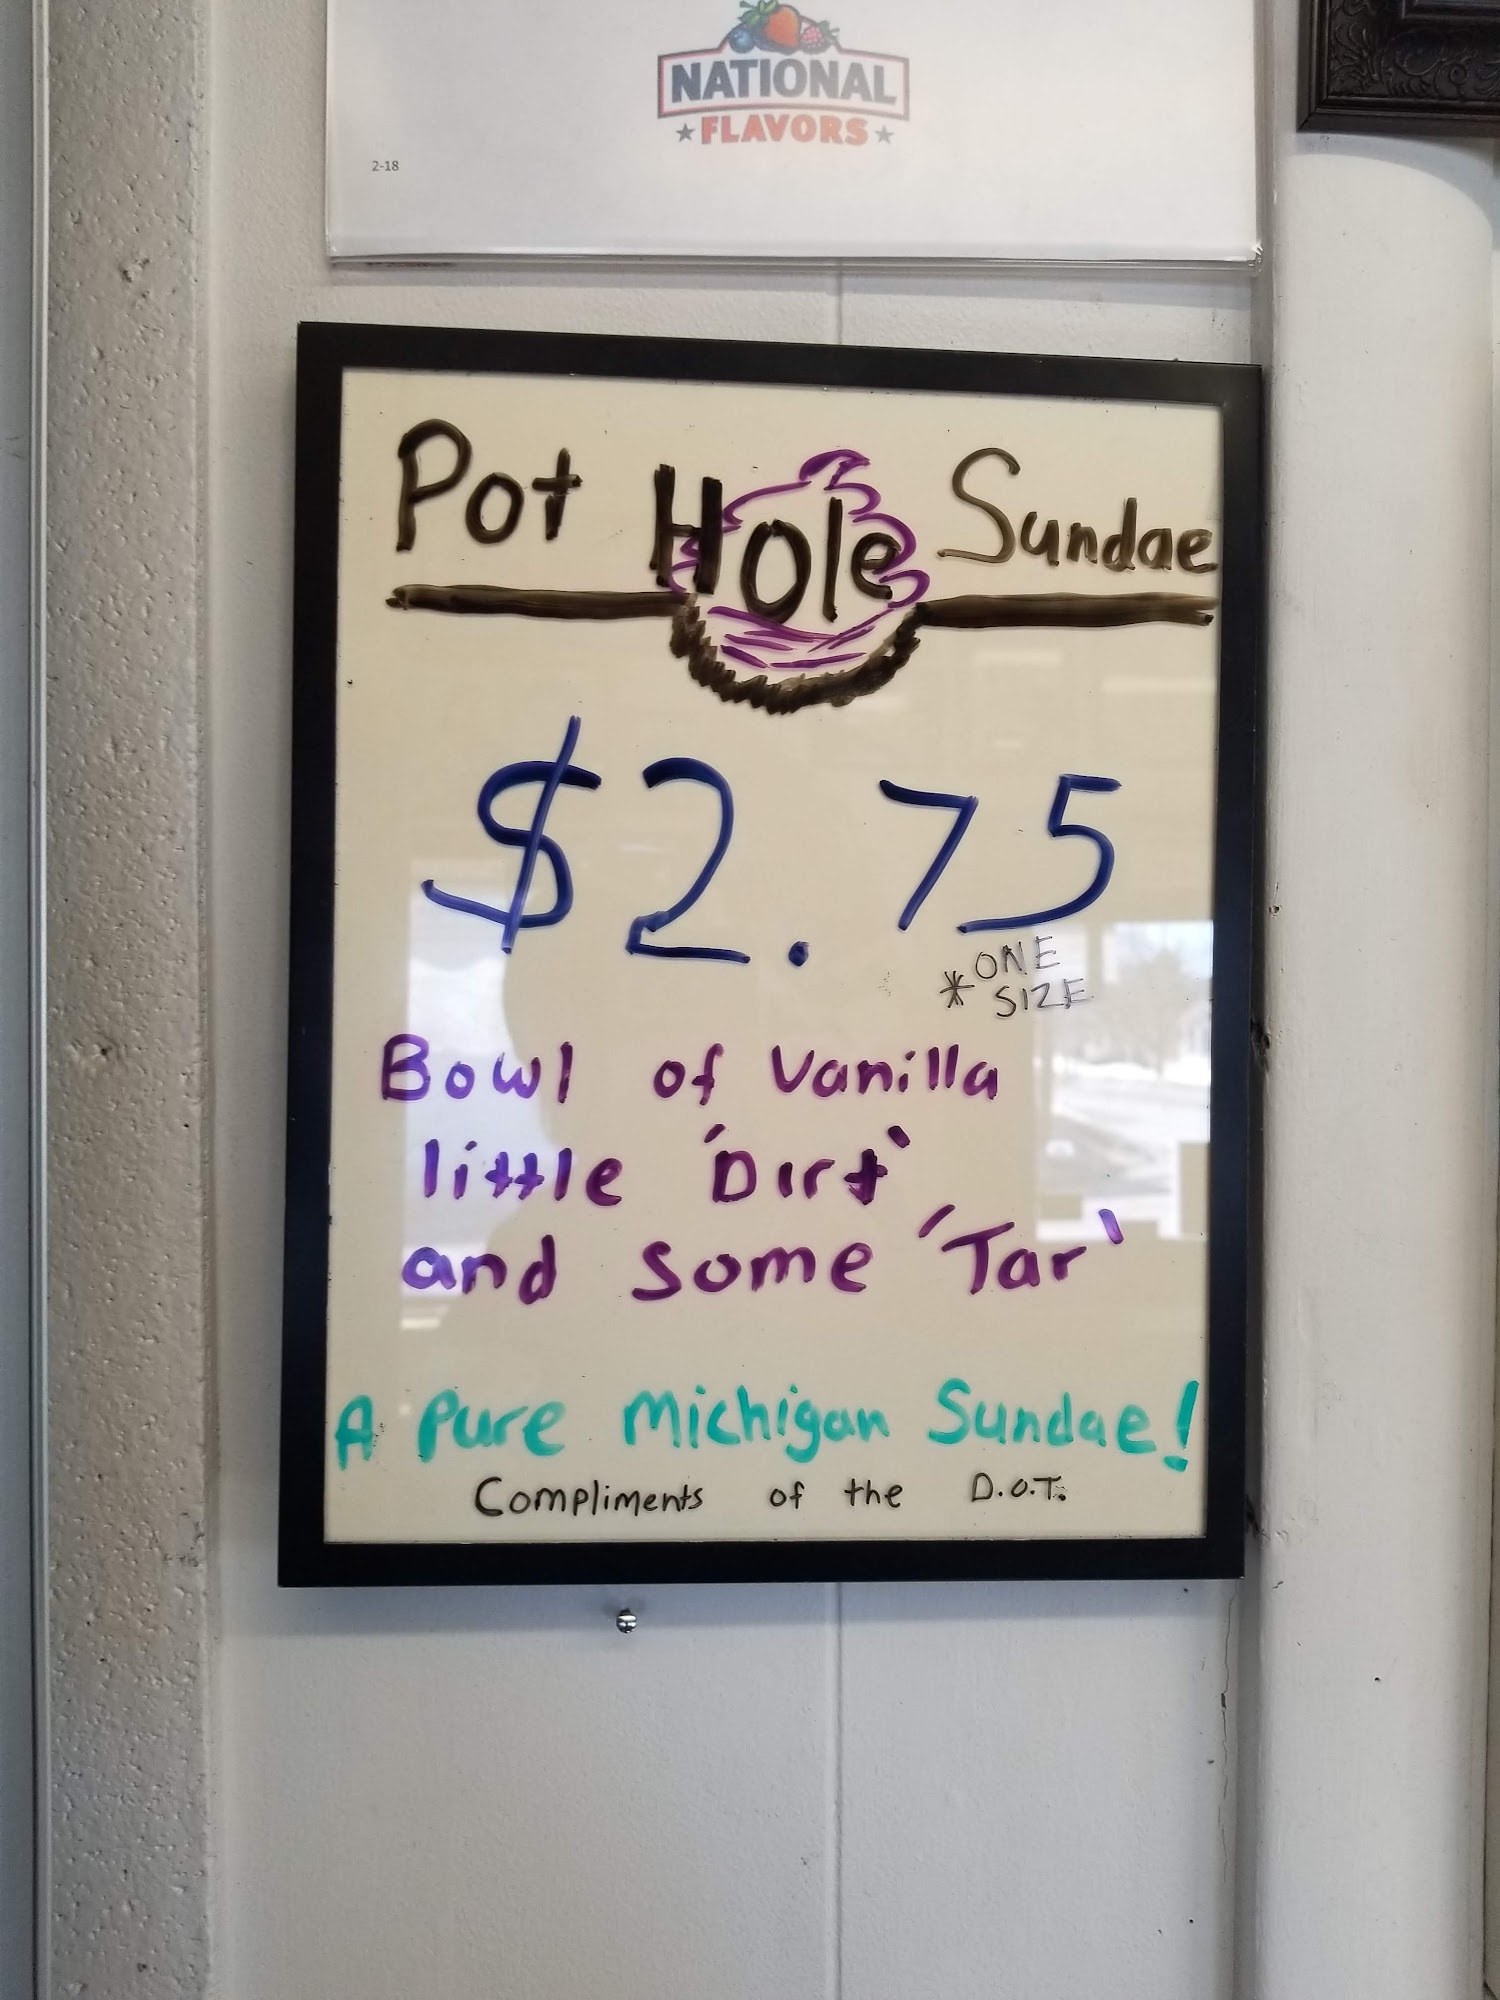 NATIONAL
FLAVORS
2-18
Pot Hole Sundae
$2.75
*ONE
SIZE
Bowl of Vanilla
little 'Dirt'
and some 'Tar'
A Pure Michigan Sundae!
Compliments of the D.O.T.